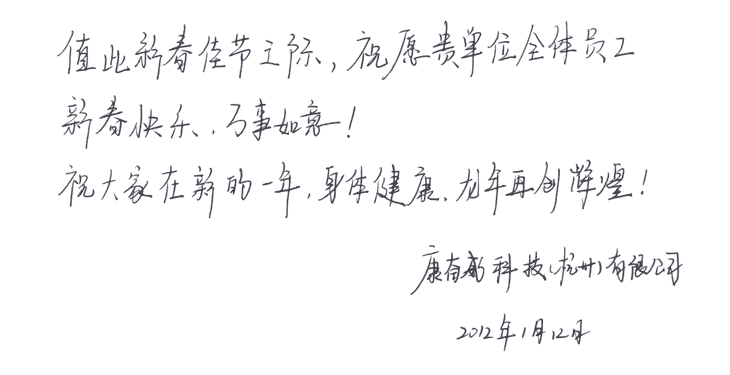 值此新春佳节之际，祝愿贵单位全体员工
新春快乐、万事如意！
祝大家在新的一年，身体健康、龙年再创辉煌！
康奋威科技（杭州）有限公司
2012年1月12日